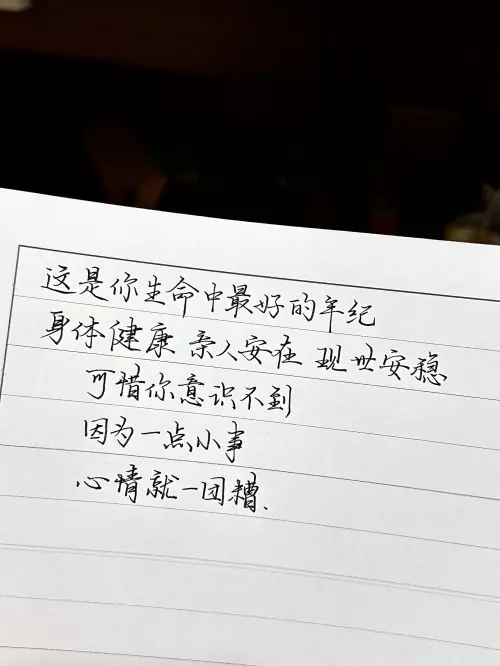 这是你生命中最好的年纪
身体健康 亲人安在 现世安稳
可惜你意识不到
因为一点小事
心情就一团糟.